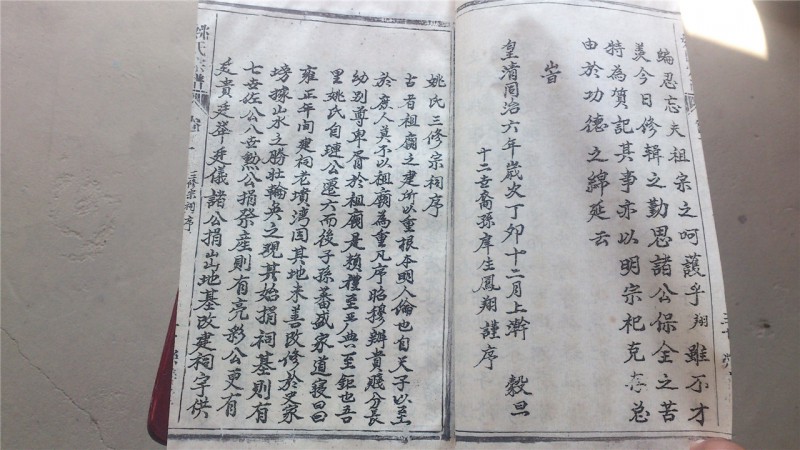 編忍忘夫祖宗之呵護乎翔雖不才
羨今日修輯之勤思諸公保全之苦
特為質記其事亦以明宗祀克存总
由於功德之綿延云
旹
皇清同治六年歲次丁卯十二月上澣 穀旦
十二世裔孫庠生鳳翔謹序
姚氏三修宗祠序
古者祖廟之建所以重根本明人倫也自天子以至
於庶人莫不以祖廟為重凡序昭穆辨貴賤分長
幼别尊卑胥於祖廟是賴禮至王典至鉅也吾
里姚氏自璉公遷六而後子孫蕃盛家道寢昌
雍正年間建祠老墳湾因其地未善改修於史家
塝據山水之勝壯輪奂之观其始捐祠基則有
七世佐公八世勲公捐祭産則有亮彩公更有
廷貴廷舉廷儀諸公捐山地基改建祠宇供
姚氏宗譜
三修宗祠序